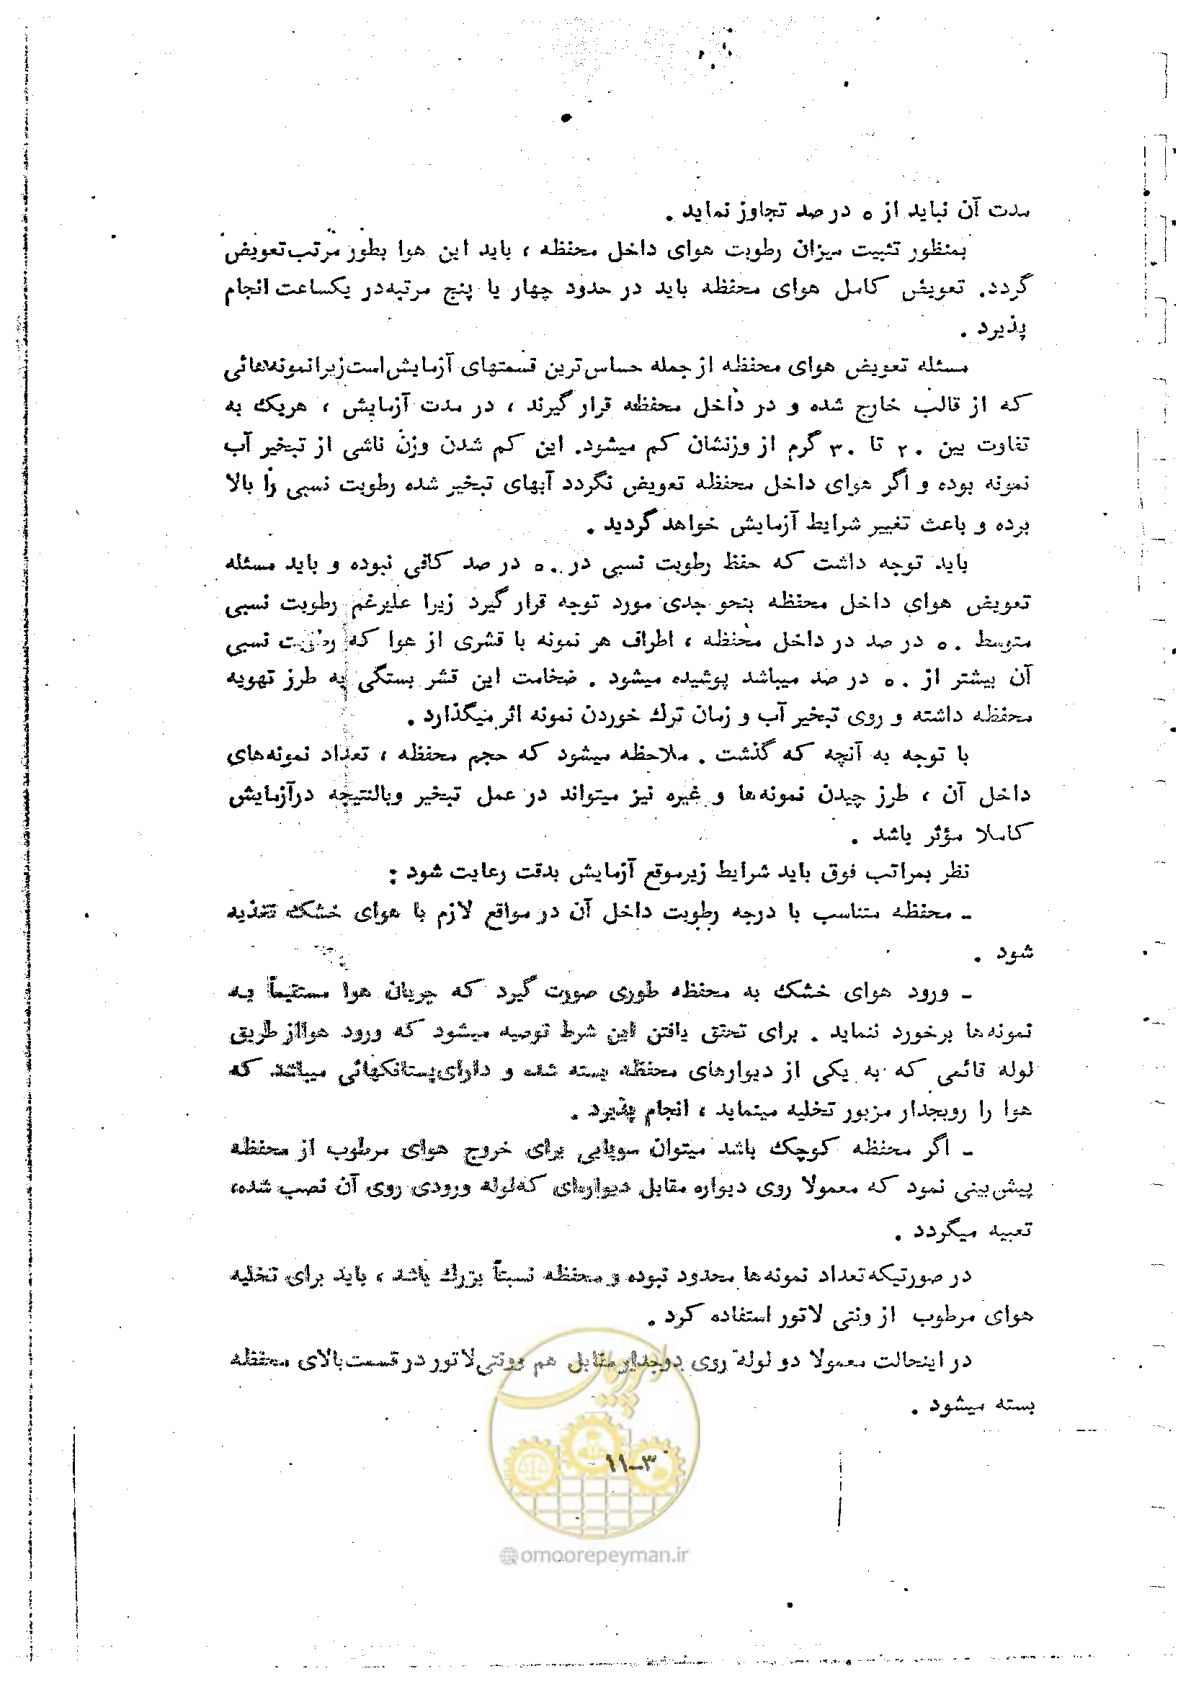 مدت آن نباید از ۵ درصد تجاوز نماید .
بمنظور تثبیت میزان رطوبت هوای داخل محفظه ، باید این هوا بطور مرتب تعویض
گردد. تعویض کامل هوای محفظه باید در حدود چهار یا پنج مرتبه در یکساعت انجام
پذیرد .
مسئله تعویض هوای محفظه از جمله حساس‌ترین قسمتهای آزمایش است زیرا نمونه‌هائی
که از قالب خارج شده و در داخل محفظه قرار گیرند ، در مدت آزمایش ، هریک به
تفاوت بین ۲۰ تا ۳۰ گرم از وزنشان کم میشود. این کم شدن وزن ناشی از تبخیر آب
نمونه بوده و اگر هوای داخل محفظه تعویض نگردد آبهای تبخیر شده رطوبت نسبی را بالا
برده و باعث تغییر شرایط آزمایش خواهد گردید .
باید توجه داشت که حفظ رطوبت نسبی در ۵۰ در صد کافی نبوده و باید مسئله
تعویض هوای داخل محفظه بنحو جدی مورد توجه قرار گیرد زیرا علیرغم رطوبت نسبی
متوسط ۵۰ در صد در داخل محفظه ، اطراف هر نمونه با قشری از هوا که رطوبت نسبی
آن بیشتر از ۵۰ در صد میباشد پوشیده میشود . ضخامت این قشر بستگی به طرز تهویه
محفظه داشته و روی تبخیر آب و زمان ترک خوردن نمونه اثر میگذارد .
با توجه به آنچه که گذشت . ملاحظه میشود که حجم محفظه ، تعداد نمونه‌های
داخل آن ، طرز چیدن نمونه‌ها و غیره نیز میتواند در عمل تبخیر وبالنتیجه درآزمایش
کاملا مؤثر باشد .
نظر بمراتب فوق باید شرایط زیرموقع آزمایش بدقت رعایت شود :
ـ محفظه متناسب با درجه رطوبت داخل آن در مواقع لازم با هوای خشک تغذیه
شود .
ـ ورود هوای خشک به محفظه طوری صورت گیرد که جریان هوا مستقیماً به
نمونه‌ها برخورد ننماید . برای تحقق یافتن این شرط توصیه میشود که ورود هوااز طریق
لوله قائمی که به یکی از دیوارهای محفظه بسته شده و دارای‌پستانکهائی میباشد که
هوا را روبجدار مزبور تخلیه مینماید ، انجام پذیرد .
ـ اگر محفظه کوچک باشد میتوان سوپاپی برای خروج هوای مرطوب از محفظه
پیش‌بینی نمود که معمولا روی دیواره مقابل دیواره‌ای که‌لوله ورودی روی آن نصب شده،
تعبیه میگردد .
در صورتیکه تعداد نمونه‌ها محدود نبوده و محفظه نسبتاً بزرگ باشد ، باید برای تخلیه
هوای مرطوب از ونتی لاتور استفاده کرد .
در اینحالت معمولا دو لوله روی دوجدار مقابل هم وونتی‌لاتور در قسمت بالای محفظه
بسته میشود .
امور پیمان
۱۱ـ۳
@omoorepeyman.ir